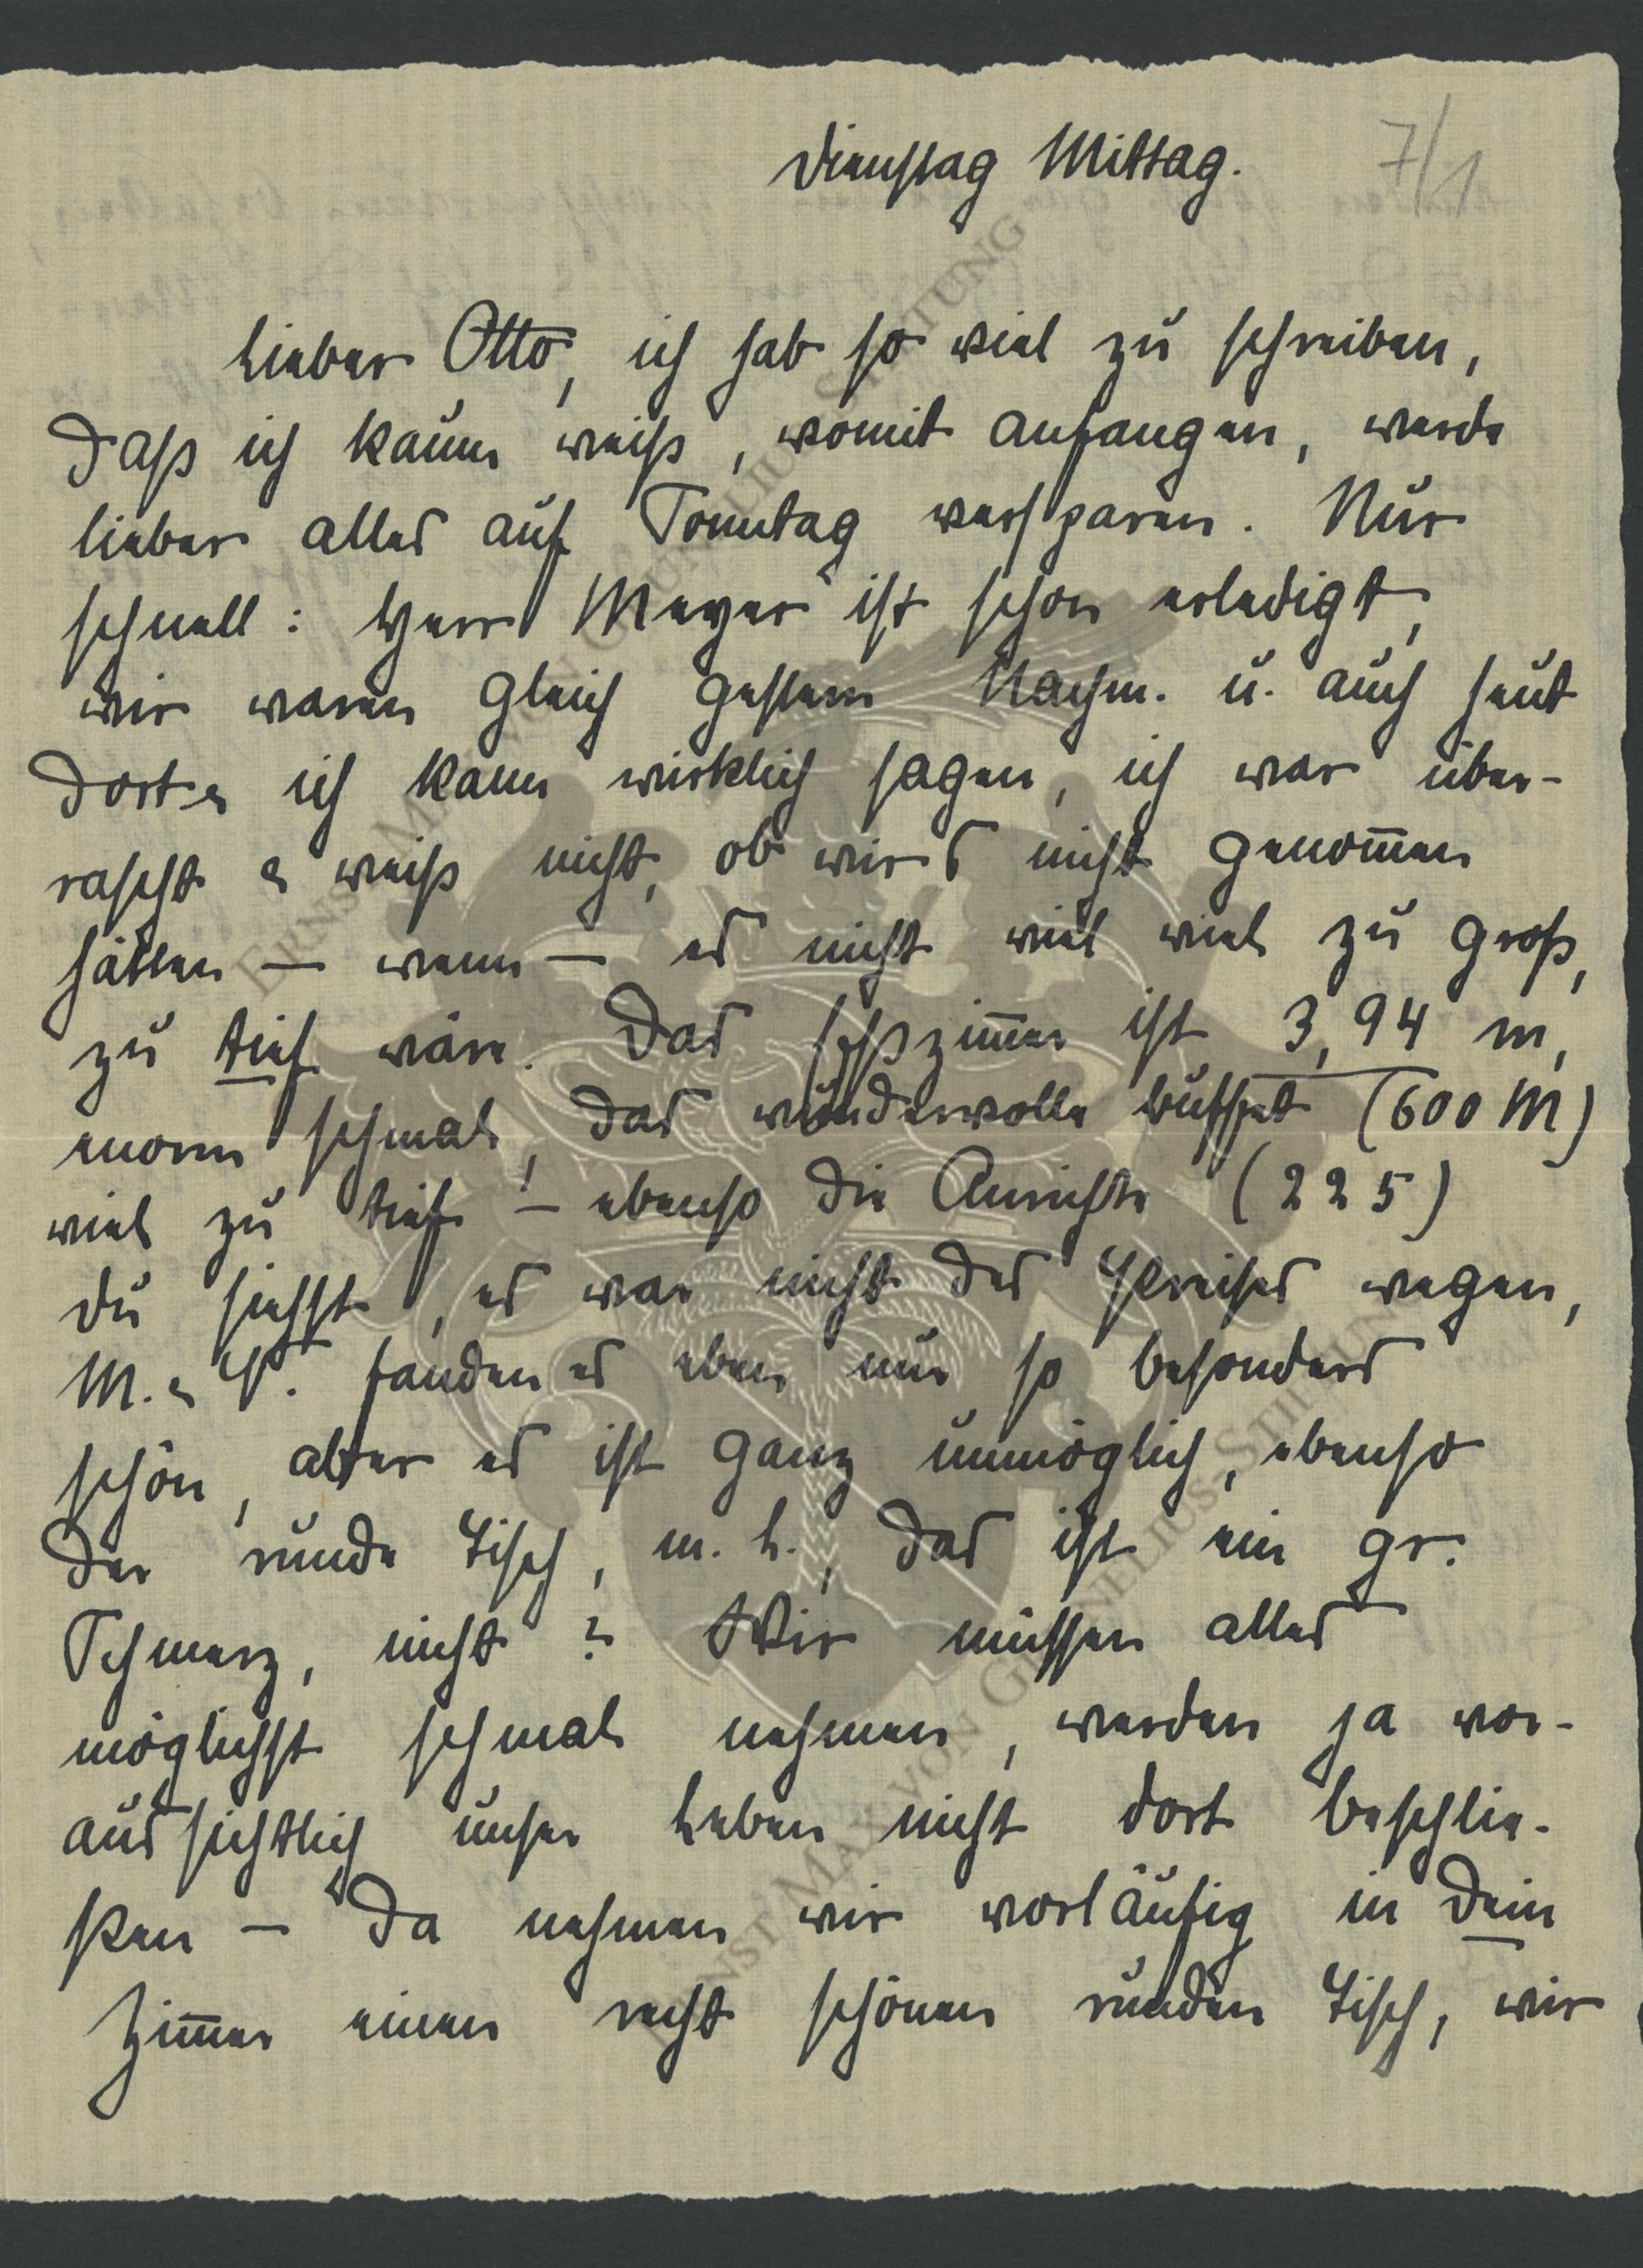 7/1
Dienstag Mittag.
Lieber Otto, ich hab so viel zu schreiben,
daß ich kaum weiß, womit anfangen, werde
lieber alles auf Sonntag versparen. Nur
schnell: Herr Meyer ist schon erledigt,
wir waren gleich gestern Nachm. u. auch heut
dort & ich kann wirklich sagen, ich war über-
rascht & weiß nicht, ob wir's nicht genom̅en
hätten — wenn — es nicht viel viel zu groß,
zu tief wäre. Das Eßzim̅er ist 3,94 m,
enorm schmal, das wundervolle Buffet (600 M)
viel zu tief! — ebenso die Anrichte (225)
Du siehst, es war nicht des Preises wegen,
M. & P. fanden es eben nur so besonders
schön, aber es ist ganz unmöglich, ebenso
der runde Tisch, m. L., das ist ein gr.
Schmerz, nicht? Wir müssen alles
möglichst schmal nehmen, werden ja vor-
aussichtlich unser Leben nicht dort beschlie-
ßen — da nehmen wir vorläufig in Dein
Zim̅er einen recht schönen runden Tisch, wir
ERNST MAX VON GRUNELIUS-STIFTUNG
ERNST MAX VON GRUNELIUS-STIFTUNG